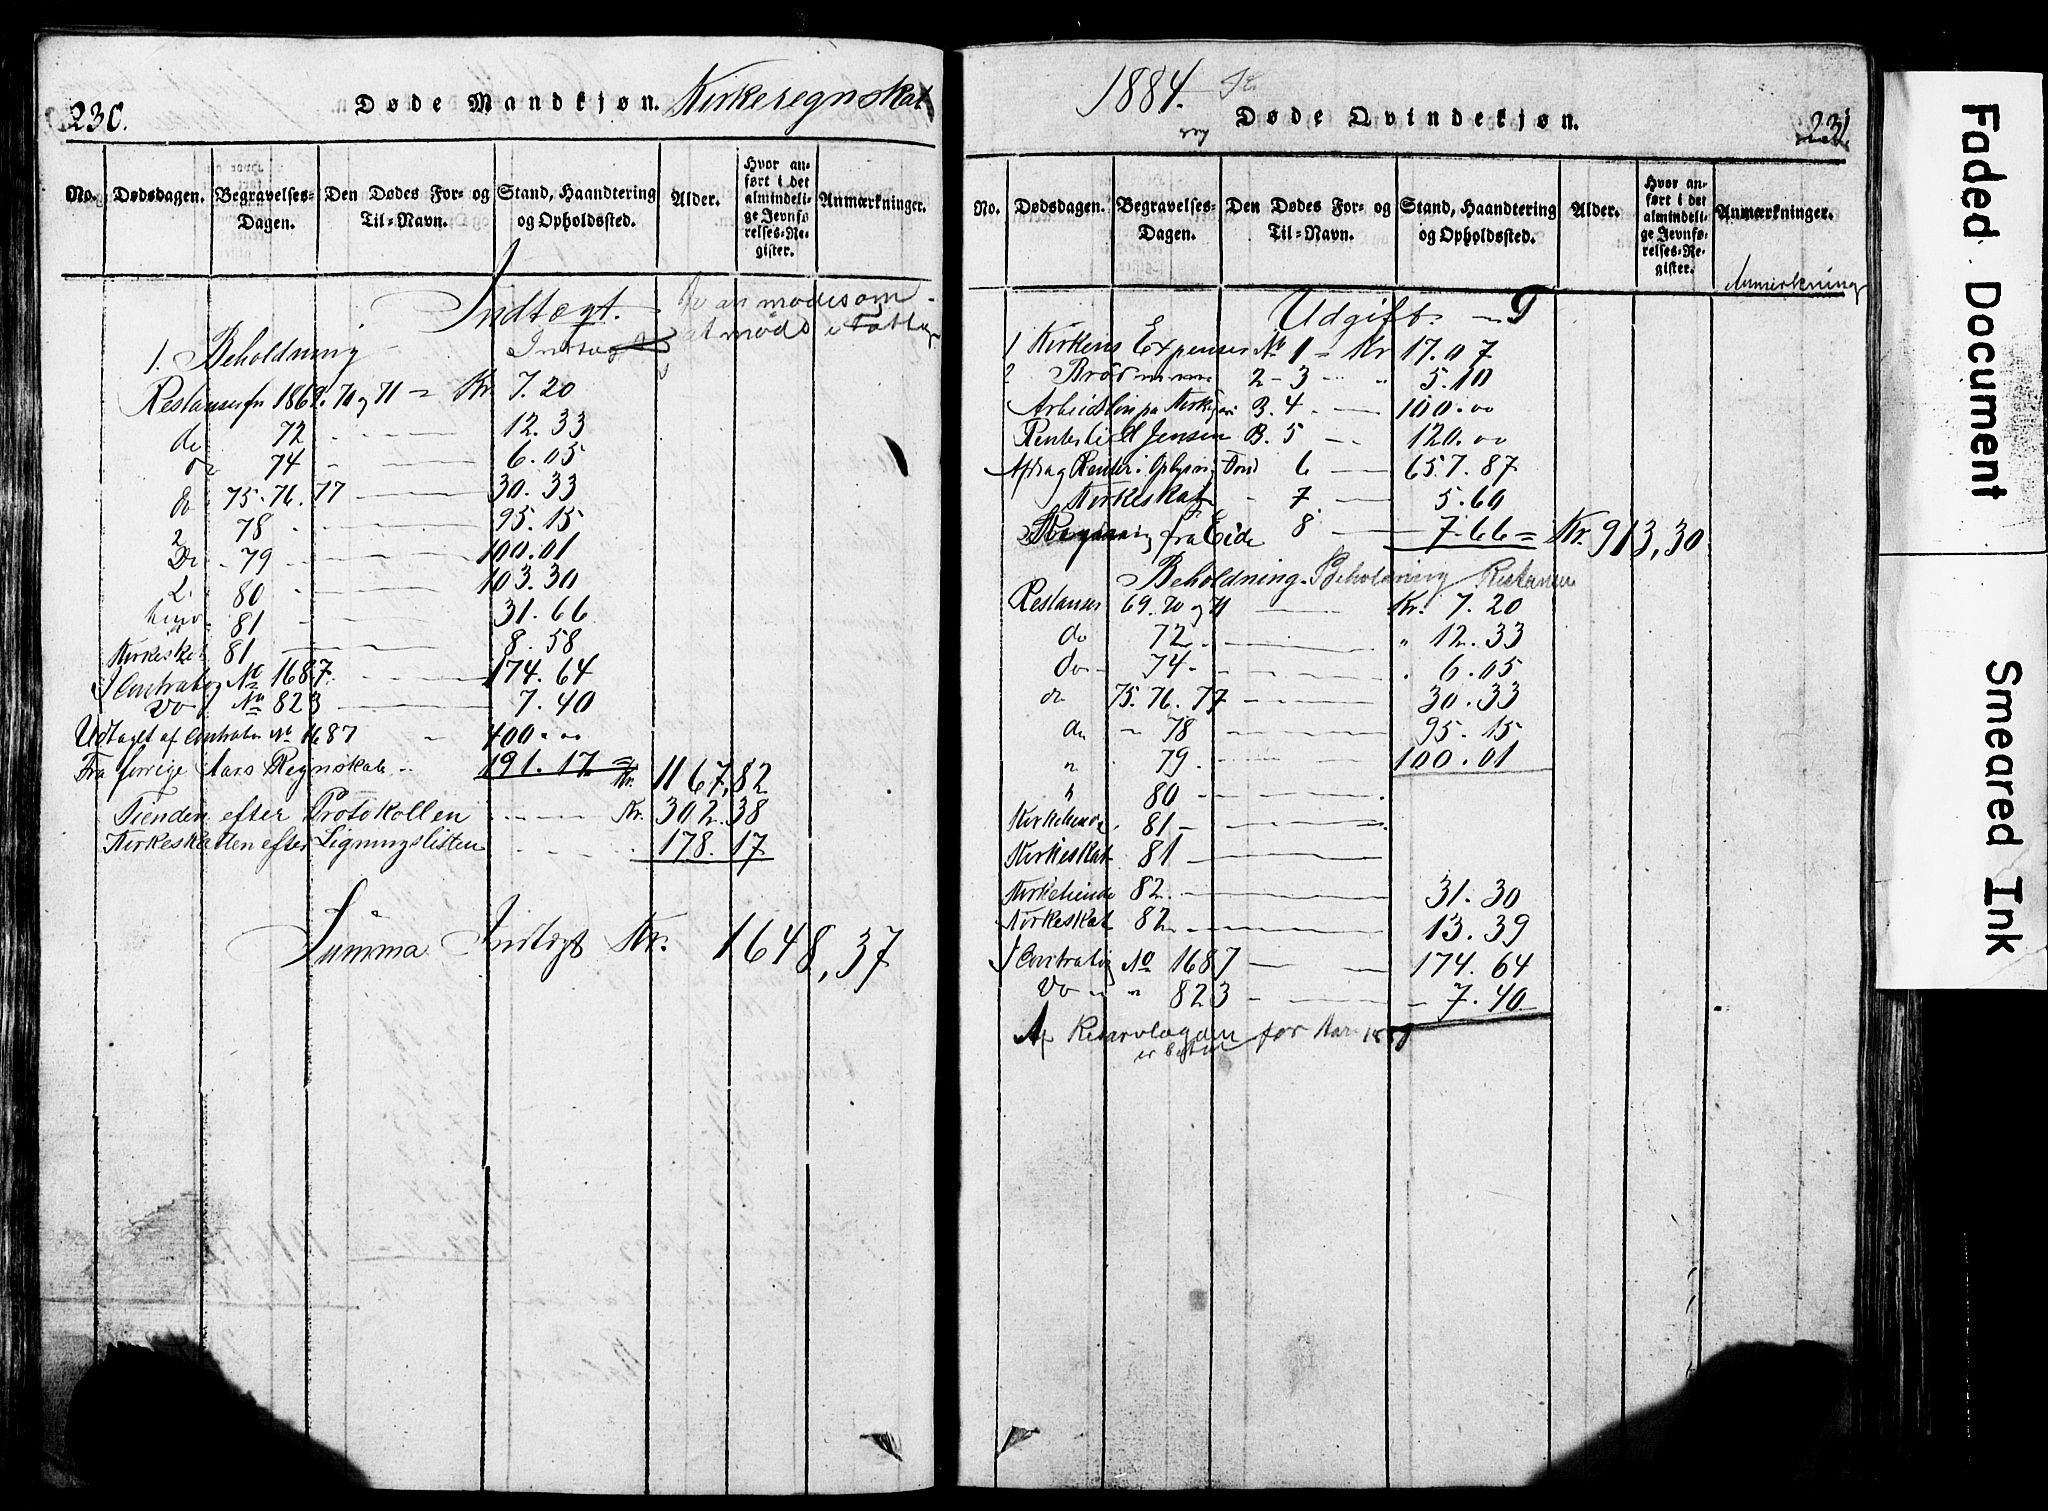 230.
Døde Mandkjøn. Kirkeregnskab
No.
Dødsdagen.
Begravelses-Dagen.
Den Dødes For- og Til-Navn.
Stand, Haandtering og Opholdssted.
Alder.
Hvor anført i det almindelige Jevnførelses-Register.
Anmærkninger.
Indtægt.
1. Beholdning
Restanser fr 1869. 70 og 71 = Kr 7.20
do 72 12.33
do 74 6.05
do 75. 76. 77 30.33
78 95.15
Do 79 100.01
80 103.30
81 31.66
Kirkeskat 81 8.58
I Contrabog No 1687 174.64
Do No 823 7.40
Udtaget af Contrabn No 1687 400.00
Fra forrige Aars Regnskab 191.17 = Kr. 1167,82
Tienden efter Protokollen Kr. 302.38
Kirkeskatten efter Ligningslisten 178.17
Summa Indtægt Kr. 1648,37
1884.
Døde Qvindekjøn.
231
No.
Dødsdagen.
Begravelses-Dagen.
Den Dødes For- og Til-Navn.
Stand, Haandtering og Opholdssted.
Alder.
Hvor anført i det almindelige Jevnførelses-Register.
Anmærkninger.
Anmærkning
Udgift
1 Kirkens Expenser No 1 = Kr 17.07
2 2-3 5.10
B. 4. 100.00
Renter til Jensen B. 5 120.00
Afdrag Renter i Oplysn. Fond 6 657.87
Kirkeskat 7. 5.60
fra Eide 8 7.66 = Kr. 913,30
Beholdning. Beholdning Restanser
Restanser 69. 70 og 71 Kr. 7.20
do 72 " 12.33
do 74 6.05
do 75. 76. 77 30.33
do " 78 95.15
" 79 100.01
" 80
81
Kirkeskat 81
Kirketiende 82. 31.30
Kirkeskat 82 13.39
I Contrabog No 1687 174.64
Do " 823 7.40
for Aar
Faded Document
Smeared Ink